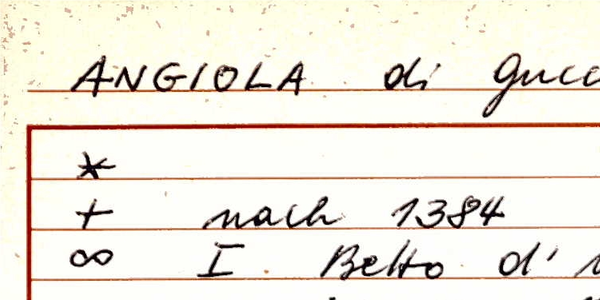 ANGIOLA di
*
+ nach 1384
∞ I Betto d'